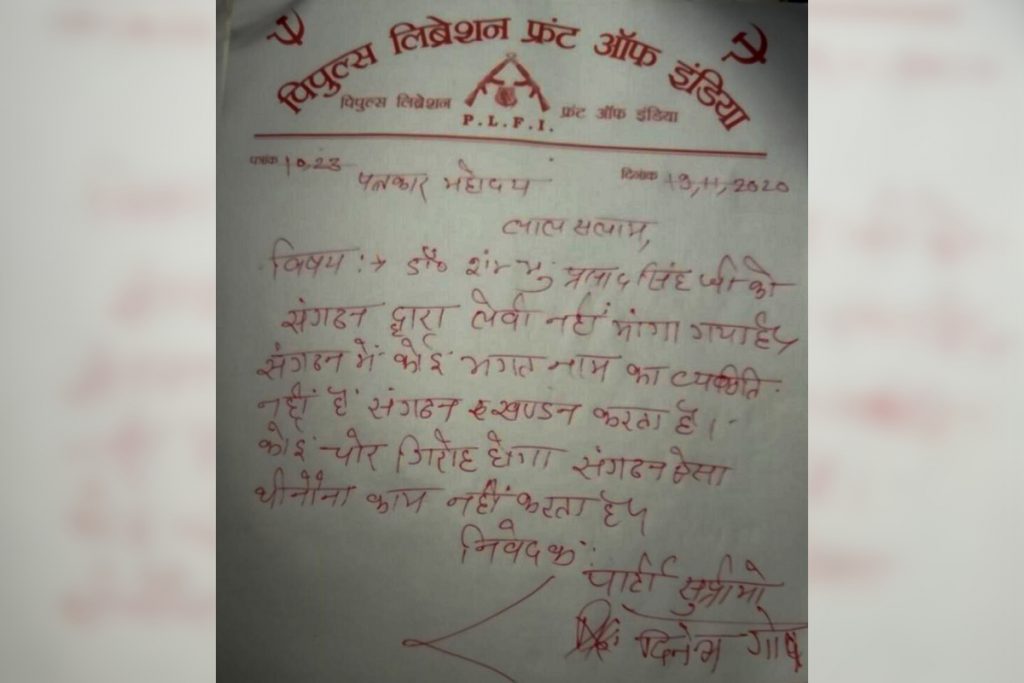 पिपुल्स लिब्रेशन फ्रंट ऑफ इंडिया
पिपुल्स लिब्रेशन फ्रंट ऑफ इंडिया
P.L.F.I.
पत्रांक 10,23 दिनांक 19,11,2020
पत्रकार महोदय
लाल सलाम,
विषय :→ डॉ० शंम्भु प्रसाद सिंह जी को
संगठन द्वारा लेवी नहीं मांगा गया है।
संगठन में कोई भगत नाम का व्यक्ति
नहीं हैं संगठन खण्डन करता है।
कोई चोर गिरोह होगा संगठन ऐसा
घीनौना काम नहीं करता है।
निवेदक :
पार्टी सुप्रीमो
दिनेश गोप